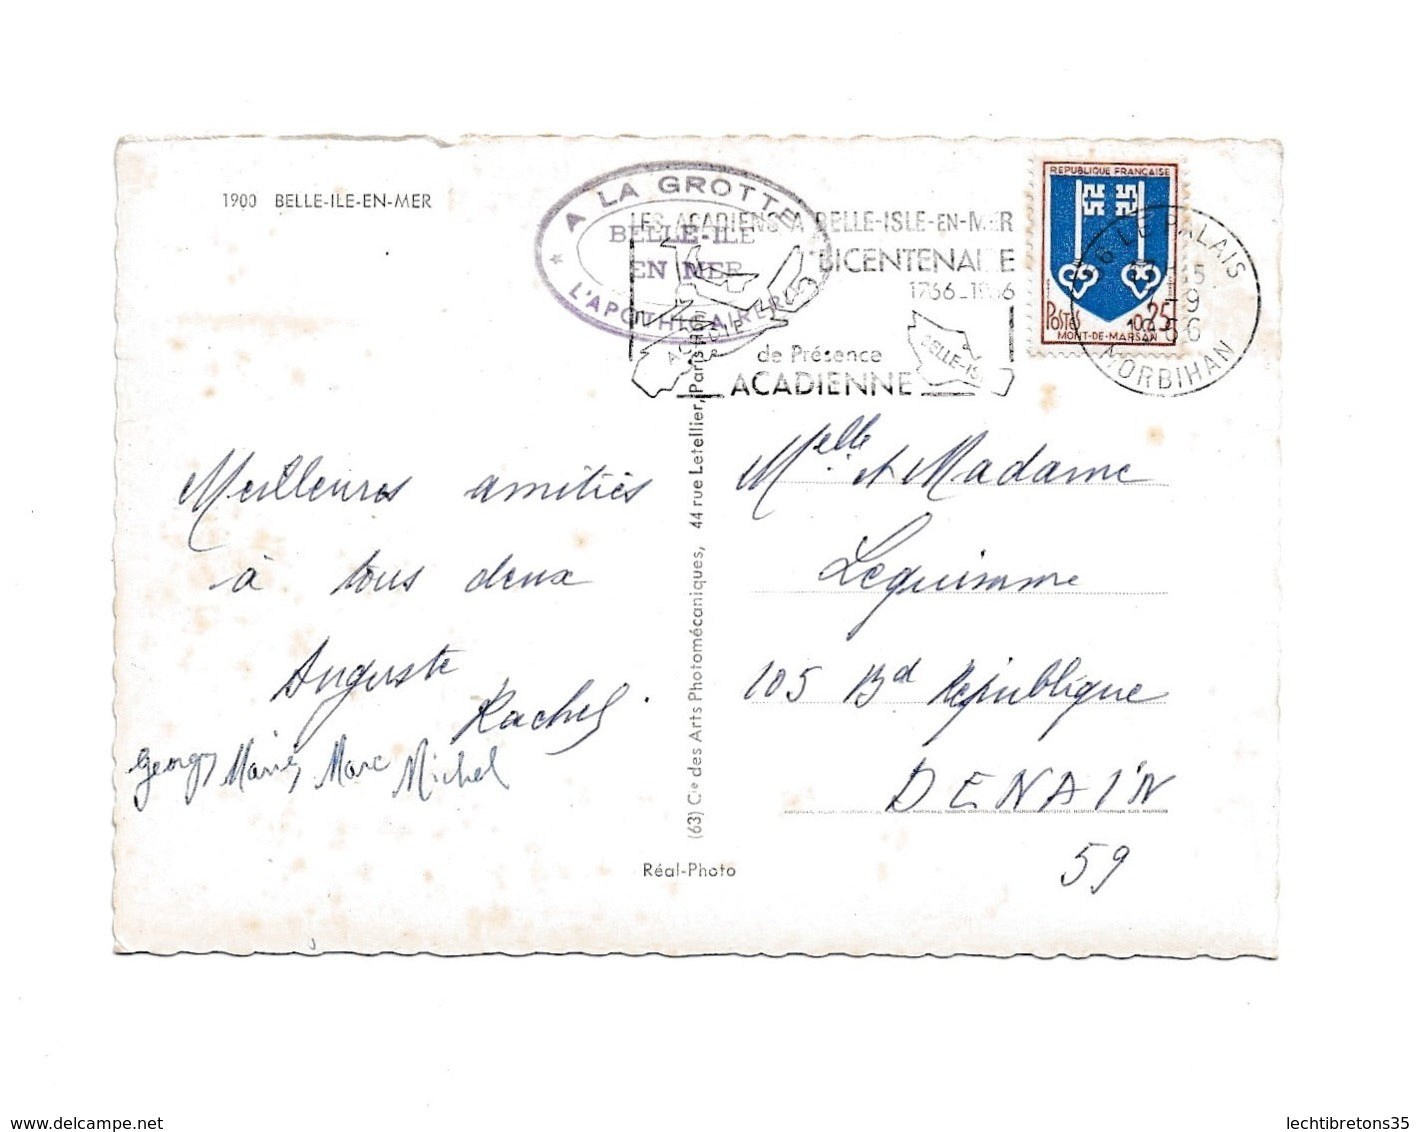 1900 BELLE-ILE-EN-MER
A LA GROTTE
BELLE-ILE
EN MER
L'APOTHICAIRERIE
LES ACADIENS A BELLE-ISLE-EN-MER
BICENTENAIRE
1766-1966
de Présence
ACADIENNE
BELLE-ISLE
REPUBLIQUE FRANÇAISE
POSTES 0,25
MONT-DE-MARSAN
LE PALAIS
MORBIHAN
Meilleures amitiés
à tous deux
Auguste
Rachel.
Georges Marie, Marc Michel
(63) Cie des Arts Photomécaniques, 44 rue Letellier, Paris
Réal-Photo
Melle et Madame
Lequimme
105 Bd République
DENAIN
59
delcampe.net
lechtibretons35